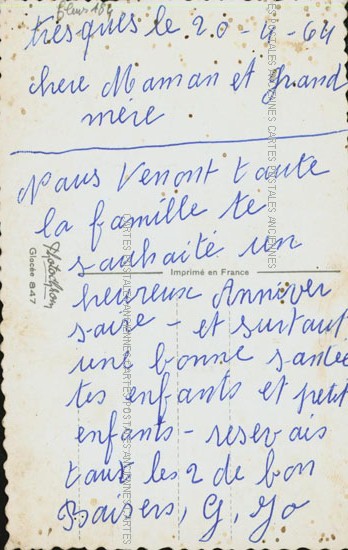 Tresques le 20-4-64
chere Maman et Grand
mère
Nous Venont toute
la famille te
souhaité un
Imprimé en France
heureux Anniver
saire - et surtout
une bonne santée
tes enfants et petit
enfants - resevais
tous les 2 de bon
Baisers, G, Jo
Glacée 847
CARTES POSTALES ANCIENNES CARTES POSTALES ANCIENNES
CARTES POSTALES ANCIENNES CARTES POSTALES ANCIENNES CARTES POSTALES ANCIENNES